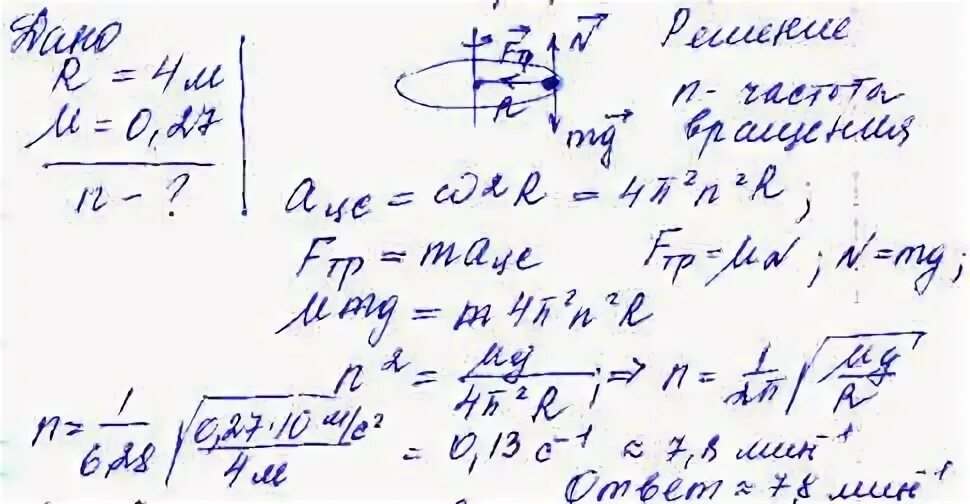 Дано
R = 4 м
μ = 0,27
n - ?
Fтр N
R
mg
Решение
n - частота
вращения
aцс = ω2R = 4π²n²R;
Fтр = maцс Fтр = μN; N = mg;
μmg = m4π²n²R
n² = μg / 4π²R; => n = 1/2π √(μg/R)
n = 1/6,28 √(0,27·10 м/с² / 4 м) = 0,13 с⁻¹ ≈ 7,8 мин⁻¹
Ответ ≈ 78 мин⁻¹